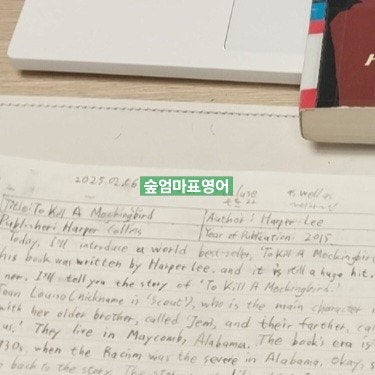 2025.02.06
숲엄마표영어
as well as
Title: To Kill A Mockingbird
Author: Harper Lee
Publisher: Harper Collins
Year of Publication: 2015
Today, I'll introduce a world best-seller, 'To Kill A Mockingbird
his book was written by Harper Lee, and it is still a huge hit.
now. I'll tell you the story of 'To Kill A Mockingbird.'
Jean Louise (nickname is 'Scout'), who is the main character
with her older brother, called Jem, and their farther, call
us.' They live in Maycomb, Alabama. The book's era is
930s, when the Racism was the severe in Alabama. Okay, s
go back to the story.